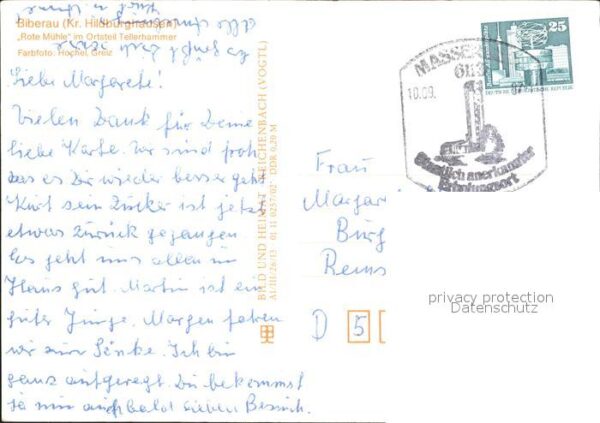 Biberau (Kr. Hildburghausen)
„Rote Mühle" im Ortsteil Tellerhammer
Farbfoto: Höchel, Greiz
Liebe Margarete!
Vielen Dank für Deine
liebe Karte. Wir sind froh
das es Dir wieder besser geht
Kurt sein Zucker ist jetzt
etwas zurück gegangen.
Es geht uns allen im
Haus gut. Martin ist ein
guter Junge. Morgen fahren
wir zur Senke. Ich bin
ganz aufgeregt. Du bekommst
ja nun auch bald lieben Besuch.
BILD UND HEIMAT REICHENBACH (VOGTL)
A1/III/26/13 01 11 0257/02 DDR 0,20 M
MASSERBERG
6113
10.09.
87
Staatlich anerkannter
Erholungsort
25
DEUTSCHE DEMOKRATISCHE REPUBLIK
Frau
Margar
Bürg
Rems
D 5
privacy protection
Datenschutz